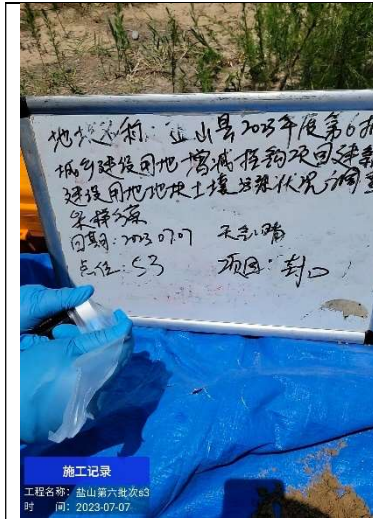 地块名称：盐山县2023年度第6批
城乡建设用地增减挂钩项目建新
建设用地地块土壤污染状况调查
采样方案
日期：2023.07.07 天气：晴
点位：S3 项目：封口
施工记录
工程名称：盐山第六批次s3
时 间：2023-07-07